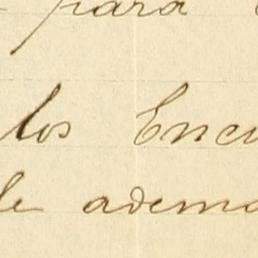 para
los Encu
le adema